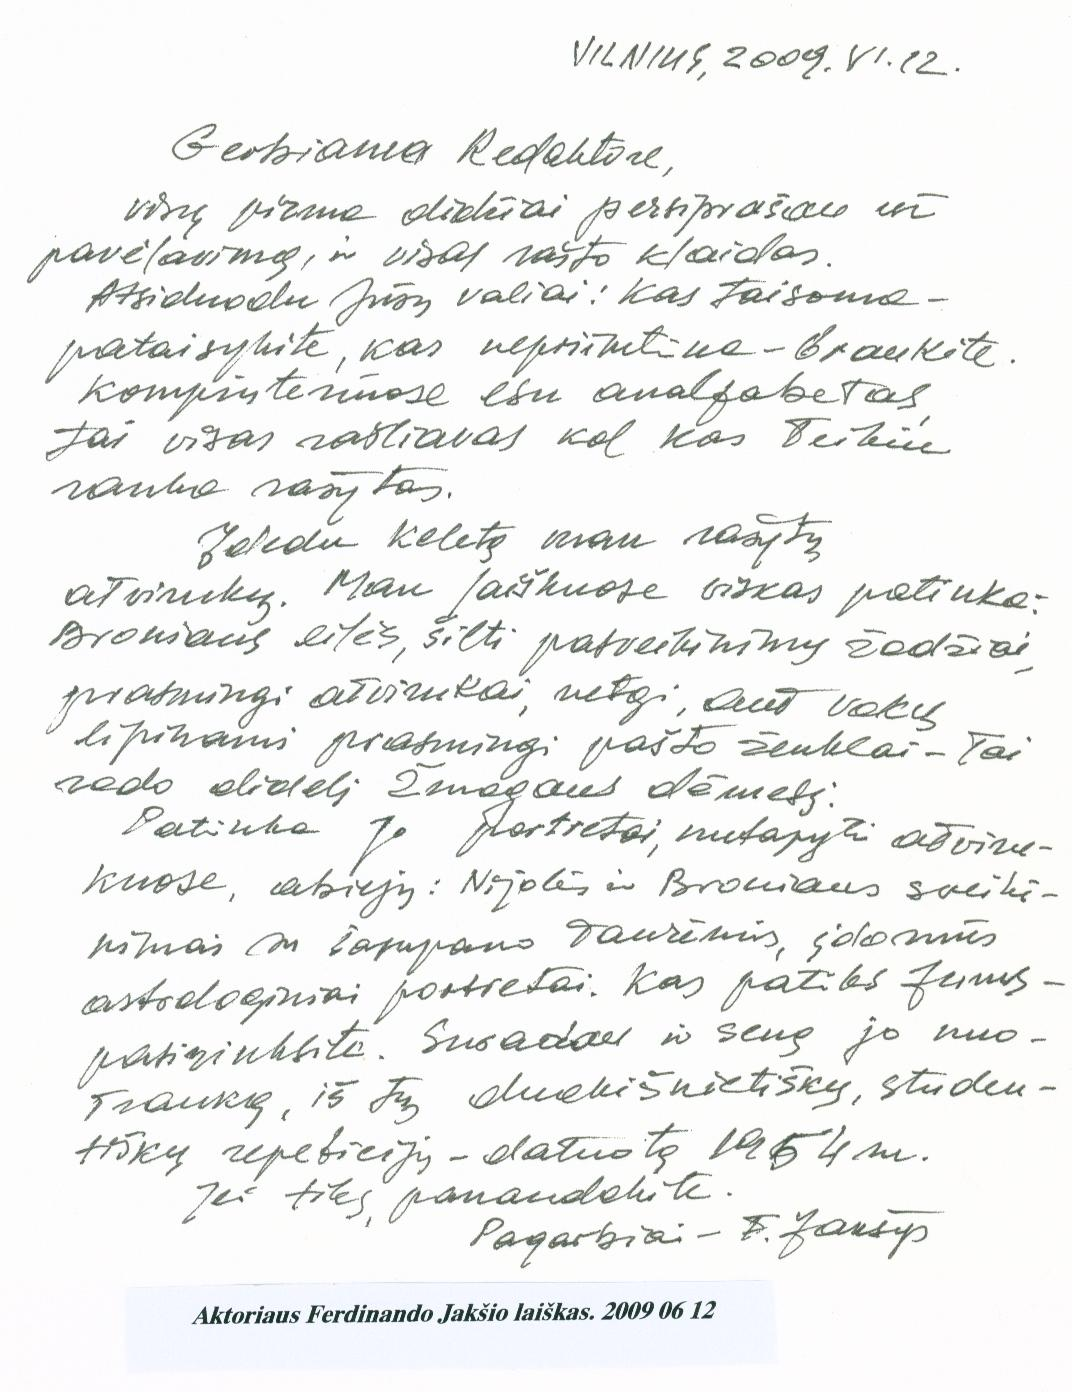 VILNIUS, 2009. VI. 12.
Gerbiama Redaktore,
visų pirma didžiai persiprašau už
pavėlavimą, ir visas rašto klaidas.
Atsiduodu Jūsų valiai: Kas taisoma –
pataisykite, kas nepriimtina – braukite.
Kompiuteriuose esu analfabetas,
tai visas rašliavas kol kas teikiu
ranka rašytas.
Įdedu keletą man rašytų
atvirukų. Man laiškuose viskas patinka:
Broniaus eilės, šilti pasveikinimų žodžiai,
prasmingi atvirukai, netgi, ant vokų
lipinami prasmingi pašto ženklai – tai
rodo didelį žmogaus dėmesį.
Patinka jo portretai, nutapyti atviru-
kuose, abiejų: Nijolės ir Broniaus sveiki-
nimas su šampano taurėmis, įdomūs
astrologiniai portretai. Kas patiks Jums –
pasirinksite. Suradau ir seną jo nuo-
trauką, iš tų duobišnietiškų, studen-
tiškų repeticijų – datuotą 1954 m.
Jei tiks, panaudokite.
Pagarbiai – F. Jakšys
Aktoriaus Ferdinando Jakšio laiškas. 2009 06 12